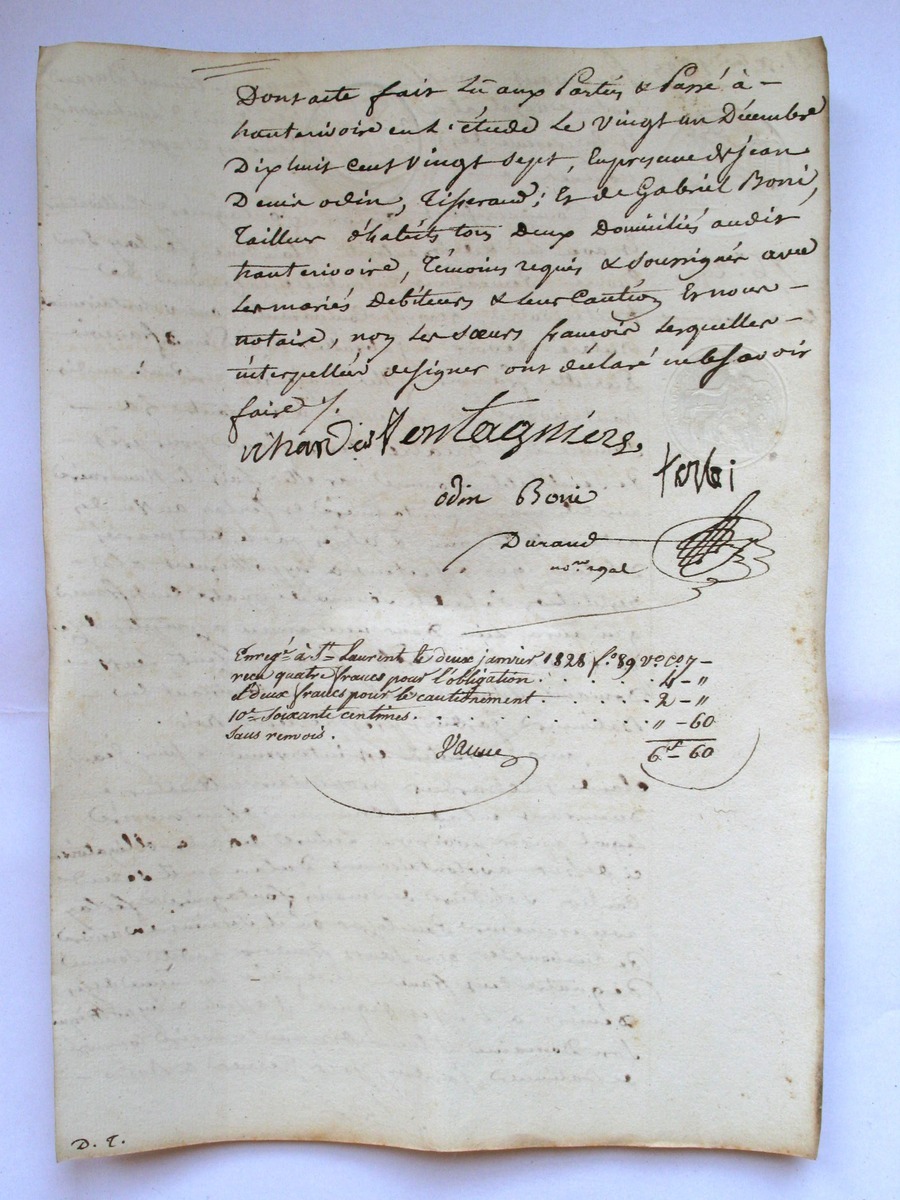 Dont acte fait Lû aux Parties & Passé à -
hauterivoire en L'étude Le Vingt un Décembre
Dix huit Cent Vingt Sept, En presence de jean
Denis odin, Tisserand; Et de Gabriel Boni,
Tailleur d'habits tous Deux Domiciliés audit
hauterivoire, Témoins requis & soussignés avec
Les mariés Debiteurs & leur Caution Et nous -
notaire, non Les sœurs francois Lesquelles -
interpellées de signer ont déclaré ne le savoir
faire /.
ferlai
odin Boni
Durand
no.re royal
Enreg.é à S.t Laurent le deux janvier 1828 f.o 89 v.o c.o 7 -
reçu quatre francs pour l'obligation . . . . . 4 - "
et deux francs pour le cautionnement . . . . 2 - "
10.e Soixante centimes . . . . . . . " - 60
Sans renvois.
6.f - 60
D. T.